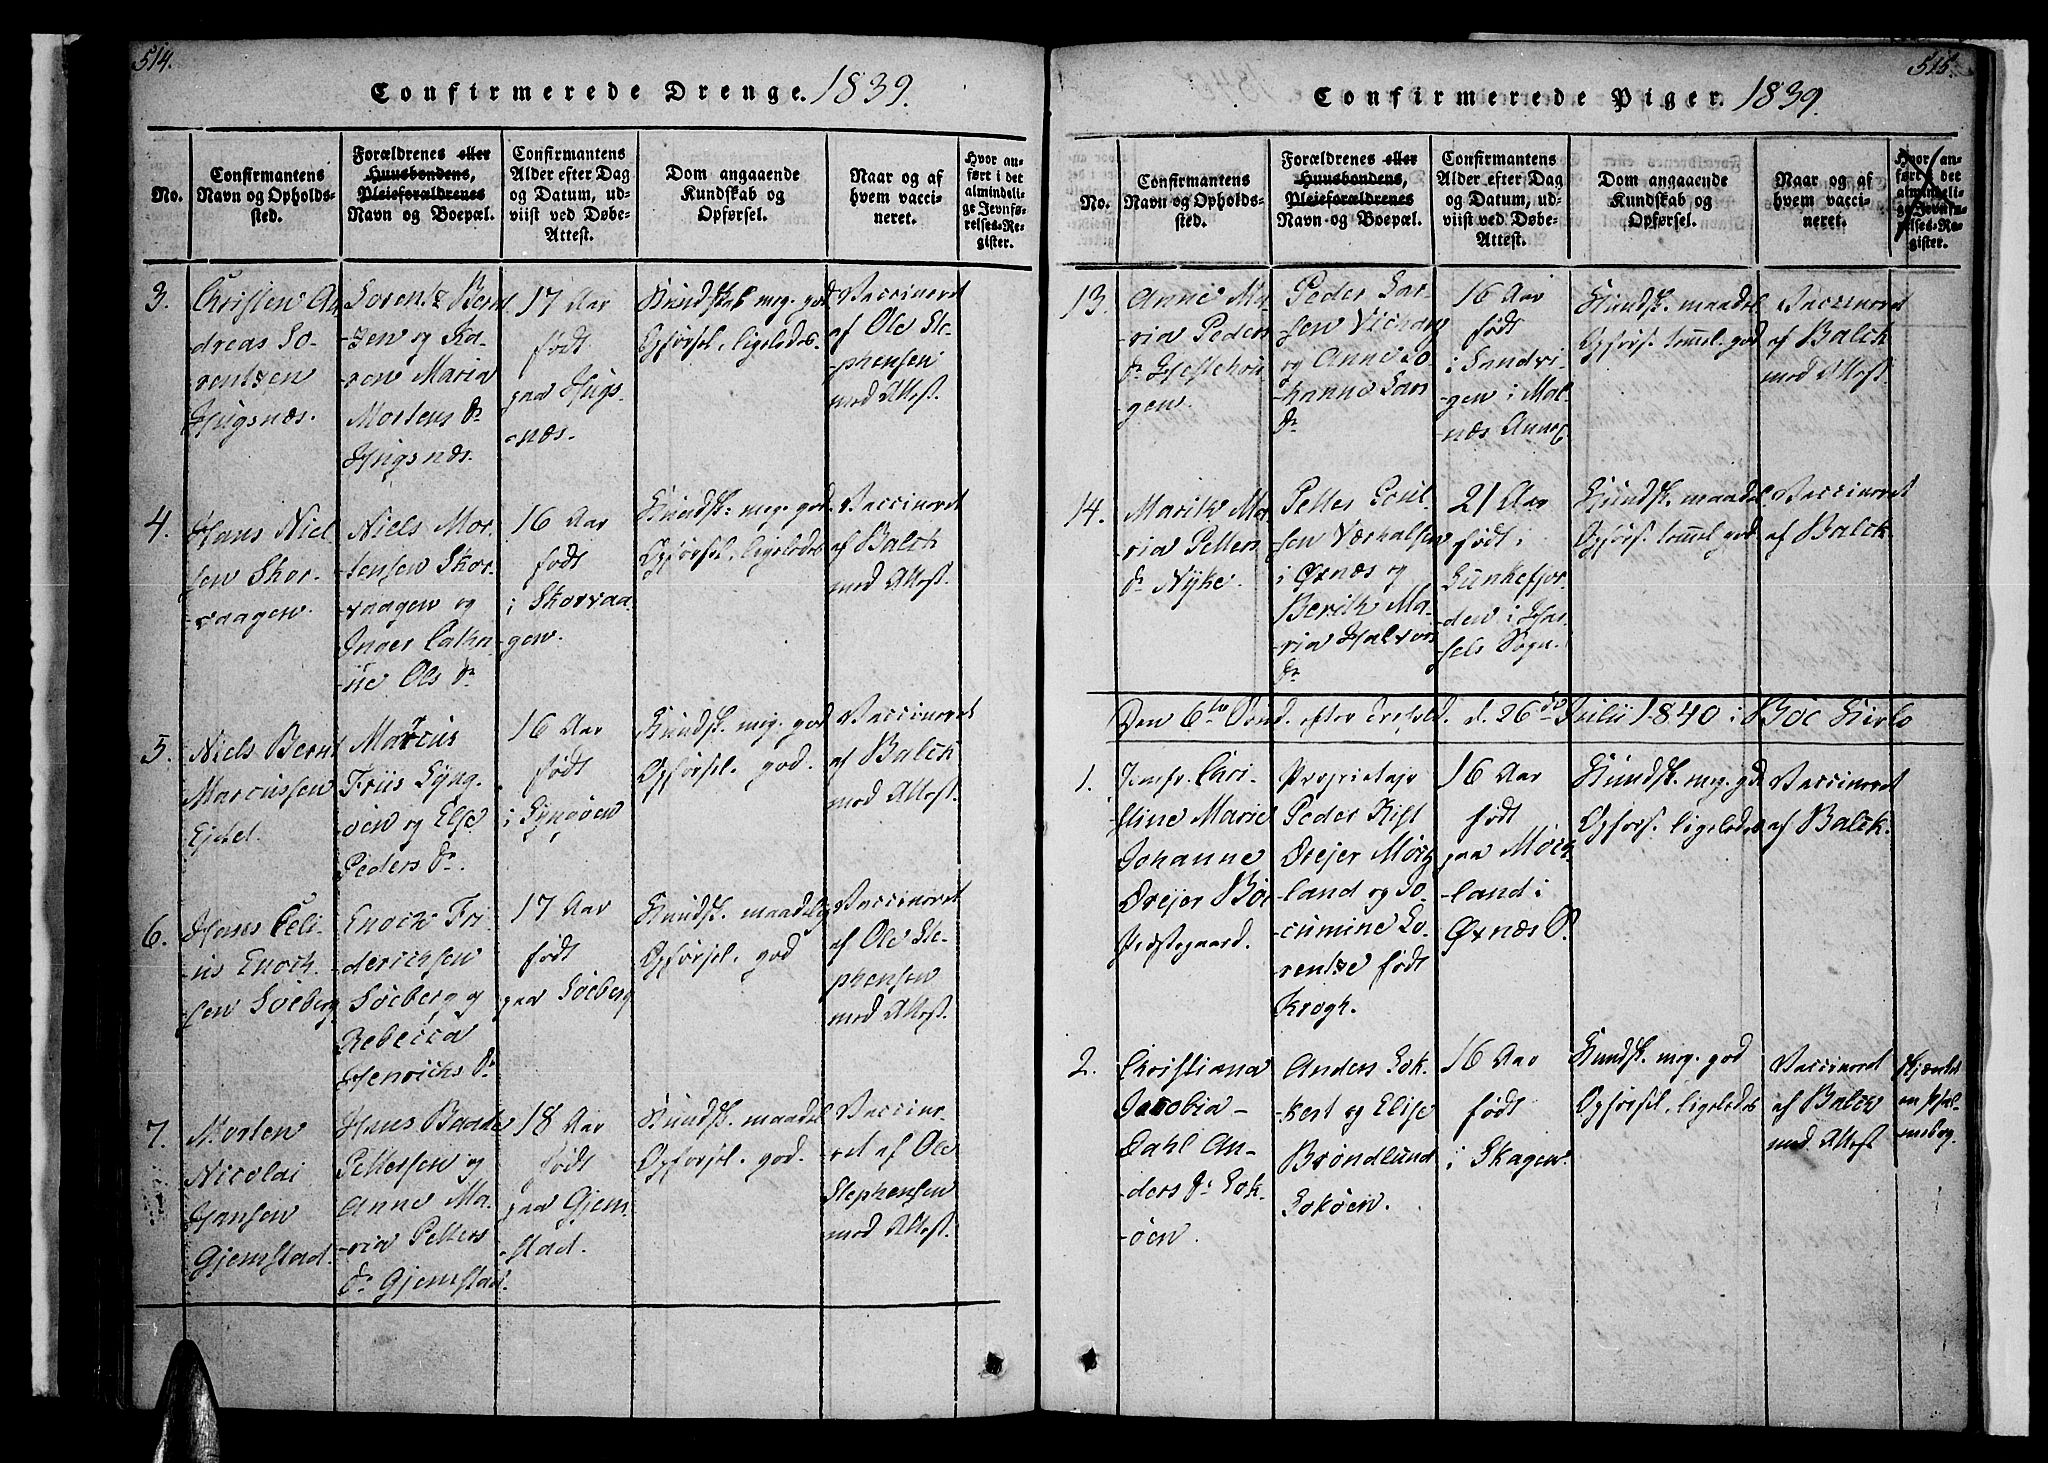 514.
Confirmerede Drenge. 1839.
No.
Confirmantens
Navn og Opholds-
sted.
Forældrenes eller
Huusbondens,
Pleieforældrenes
Navn og Boepæl.
Confirmantens
Alder efter Dag
og Datum, ud-
viist ved Døbe-
Attest.
Dom angaaende
Kundskab og
Opførsel.
Naar og af
hvem vacci-
neret.
Hvor an-
ført i det
almindeli-
ge Jevnfø-
relses-Re-
gister.
3.
Christen An-
dreas Lo-
rentzen
Hugsnæs.
Lorentz Bernt
-zen og Ka-
ren Maria
Mortens Dr
Hugsnæs.
17 Aar
født
paa Hugs-
-næs.
Kundskab meg. god
Opførsel, ligeledes.
Vaccineret
af Ole Ste-
phensen
med Attest.
4.
Hans Niel-
sen Skor-
vaagen.
Niels Mor-
tensen Skor-
vaagen og
Inger Catha-
rine Ols Dr
16 Aar
født
i Skorvaa-
gen.
Kundsk. meg. god
Opførsel, ligeledes
Vaccineret
af Balck
med Attest.
5.
Niels Bernt
Marcussen
Eidet.
Marcus
Friis Lyng-
öen og Else
Peders Dr.
16 Aar
født
i Lyngöen
Kundsk. meg. god
Opførsel. god.
Vaccineret
af Balck
med Attest.
6.
Hans Eeli-
us Enoch-
sen Söeberg
Enoch Fri-
derichsen
Söeberg og
Rebecca
Henrichs Dr
17 Aar
født
paa Söeberg
Kundsk. maadelig
Opførsel. god
Vaccineret
af Ole Ste-
phensen
med Attest.
7.
Morten
Nicolai
Hansen
Gjemstad.
Hans Baade
Pettersen og
Anne Ma-
ria Petters
Dr Gjemstad.
18 Aar
født
paa Gjem-
stad.
Kundsk. maadel.
Opførsel. god.
Vaccine-
ret af Ole
Stephensen
med Attest.
515.
Confirmerede Piger. 1839.
No.
Confirmantens
Navn og Opholds-
sted.
Forældrenes eller
Huusbondens,
Pleieforældrenes
Navn og Boepæl.
Confirmantens
Alder efter Dag
og Datum, ud-
viist ved Døbe-
Attest.
Dom angaaende
Kundskab og
Opførsel.
Naar og af
hvem vacci-
neret.
Hvor an-
ført i det
almindeli-
ge Jevnfø-
relses-Re-
gister.
13.
Anne Ma-
ria Peders
Dr
gen.
Peder Lar-
sen
og Anne Jo-
hanne Lars
Dr
16 Aar
født
i Sandvi-
gen i Mal-
næs Annex
Kundsk. maadel.
Opførs. temmel. god
Vaccineret
af Balck
med Attest.
14.
Marith Ma-
ria Petters
Dr Nyke.
Petter Poul-
sen
i Öxnæs og
Berith Ma-
ria Halvors
Dr
21 Aar
født i
Lunkefjor-
den i Has-
sels Sogn.
Kundsk. maadel.
Opførs. temmel. god
Vaccineret
af Balck.
Den 6te Sönd. efter Trefold. d. 26de Julii 1840 i Böe Kirke
1.
Jomfr. Chri-
stine Marie
Johanne
Dreyer Böe
Præstegaard.
Proprietair
Peder Kist
Dreyer
land og Jo-
cumine Lo-
rentze født
Krogh.
16 Aar
født
paa
land i
Öxnæs P.
Kundsk. meg. god
Opførs. ligeledes
Vaccineret
af Balck.
2.
Christiana
Jacobia
Dahl An-
ders Dr Lok-
öen.
Anders Lok-
kert og Elise
Bröndlund
Loköen.
16 Aar
født
i Skagen.
Kundsk. meg. god
Opførsel. ligeledes
Vaccineret
af Balck
med Attest
skjænket
en Psal-
mebog.